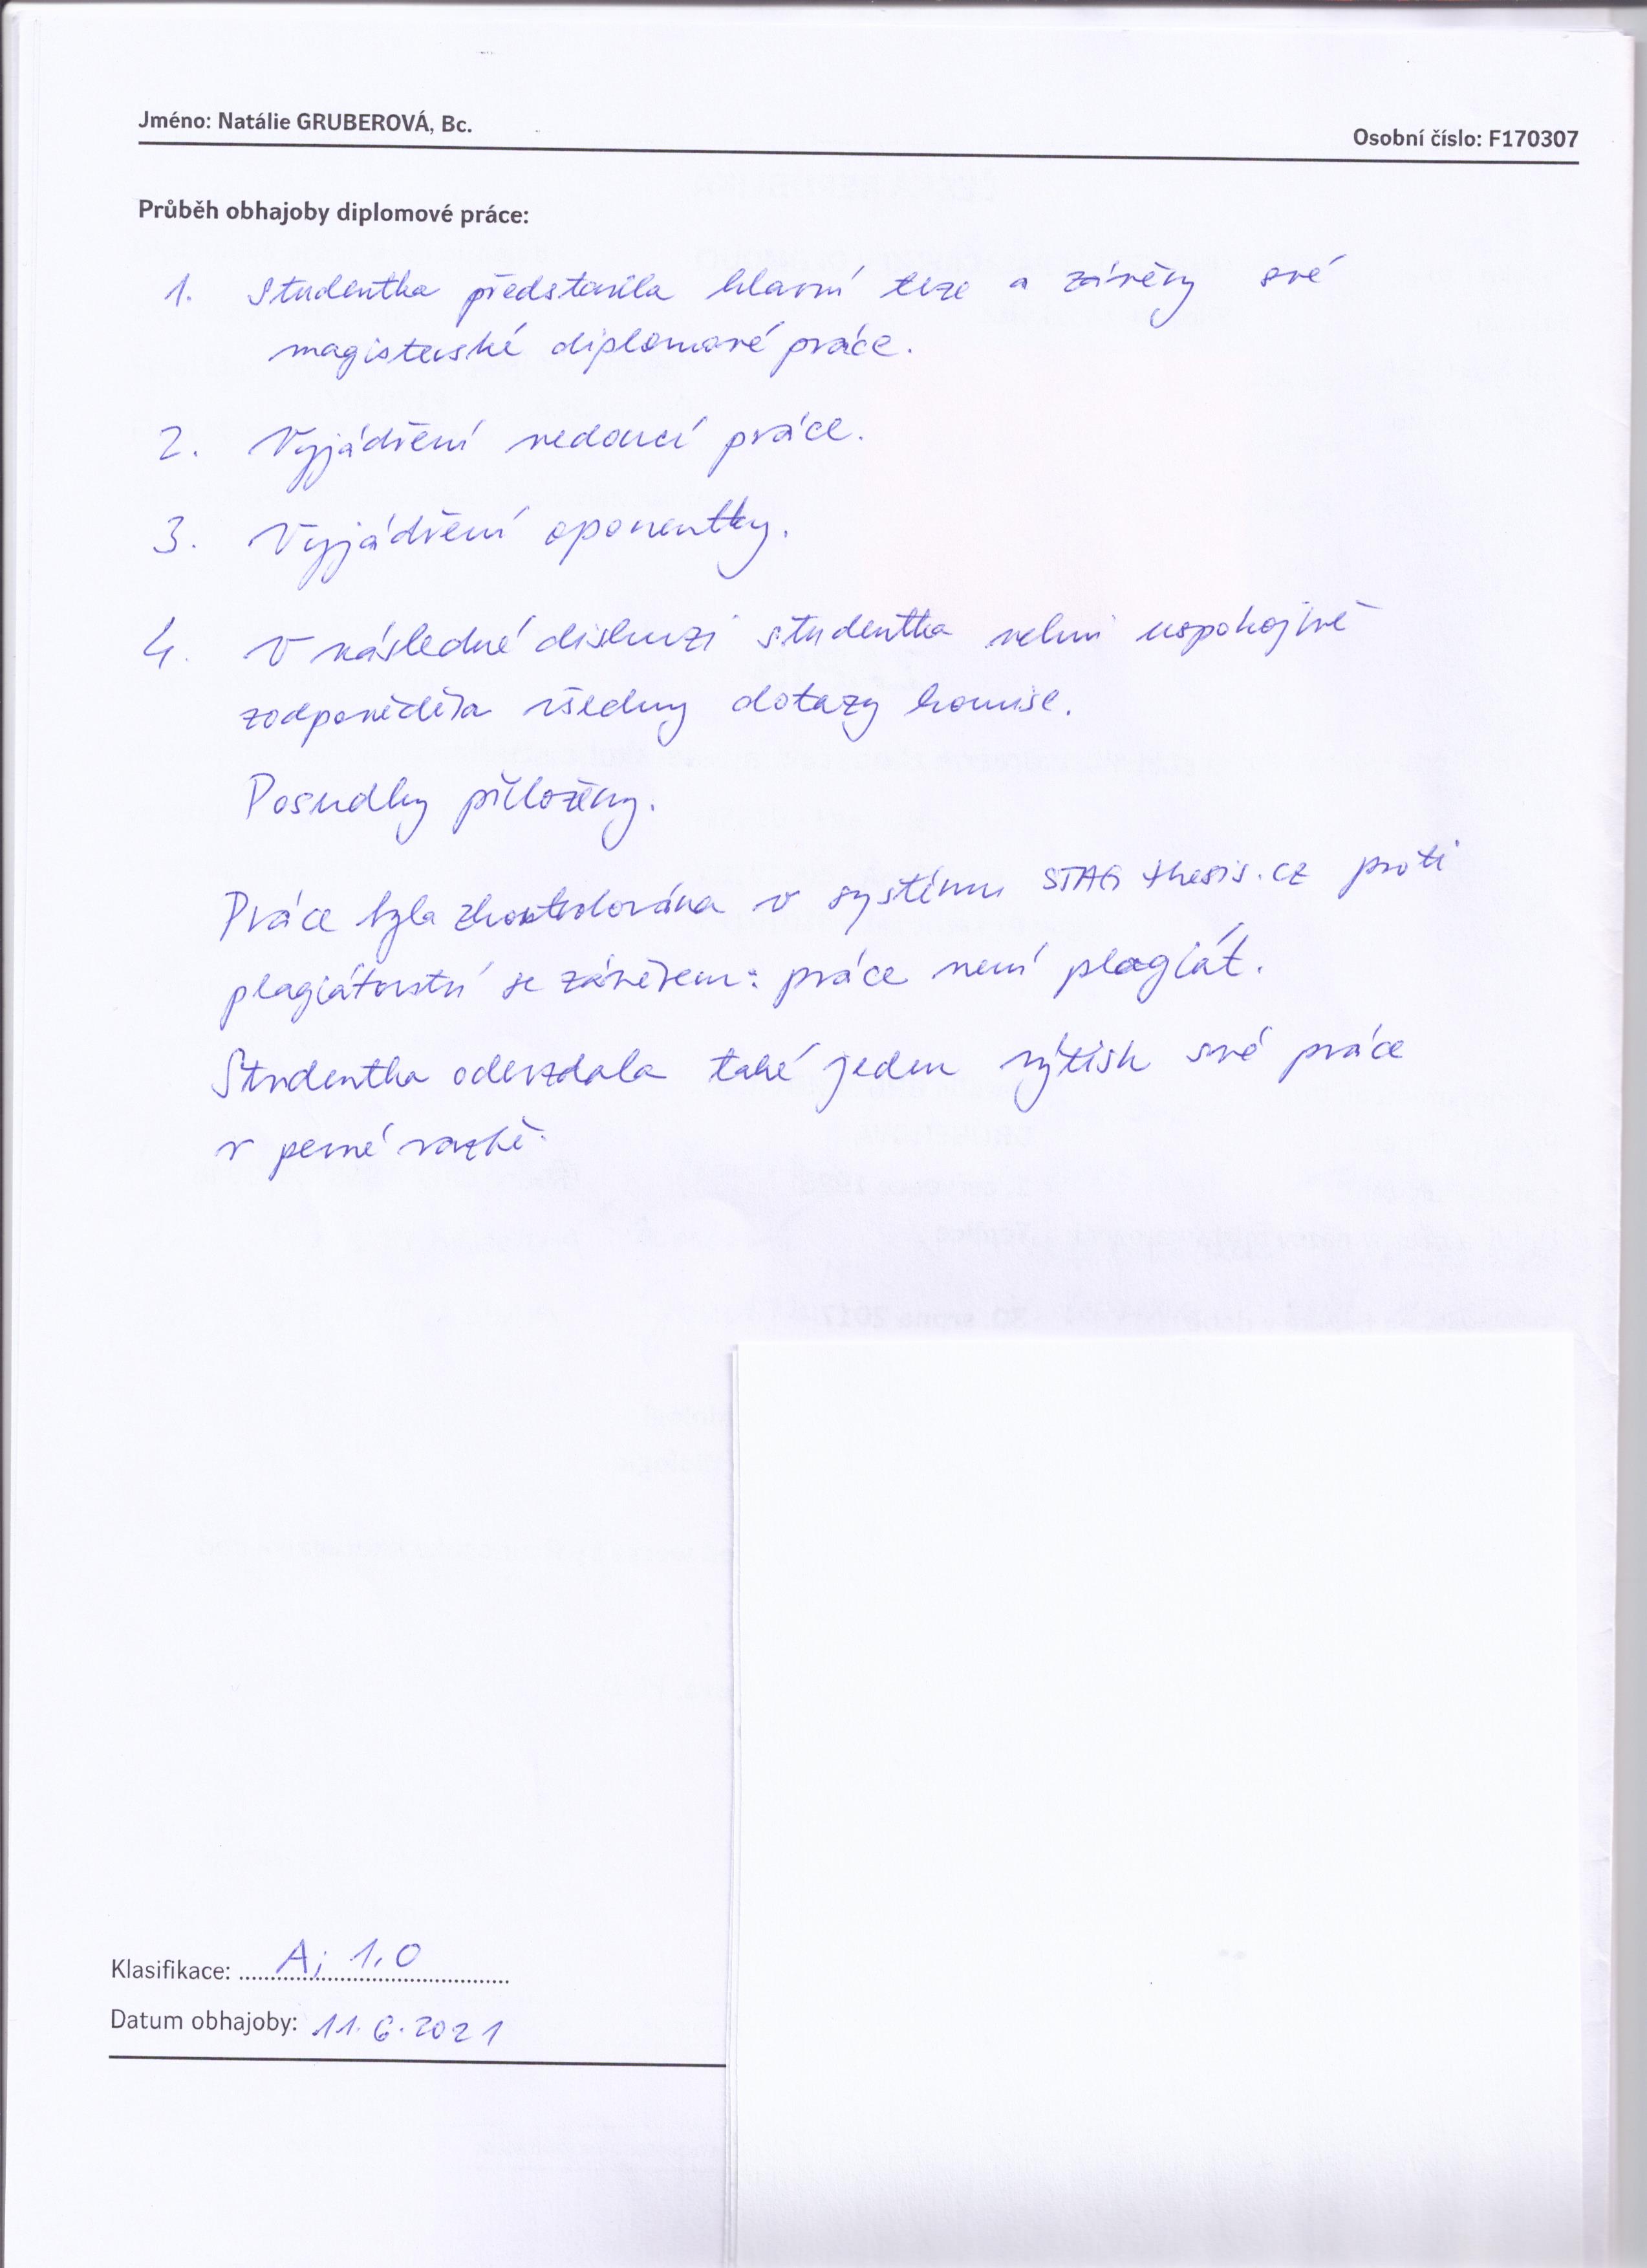 Jméno: Natálie GRUBEROVÁ, Bc.
Osobní číslo: F170307
Průběh obhajoby diplomové práce:
1. Studentka představila hlavní teze a závěry své
magisterské diplomové práce.
2. Vyjádření vedoucí práce.
3. Vyjádření oponentky.
4. V následné diskuzi studentka velmi uspokojivě
zodpověděla všechny dotazy komise.
Posudky přiloženy.
Práce byla zkontrolována v systému STAG thesis.cz proti
plagiátorství se závěrem: práce není plagiát.
Studentka odevzdala také jeden výtisk své práce
v pevné vazbě.
Klasifikace: A; 1,0
Datum obhajoby: 11.6.2021